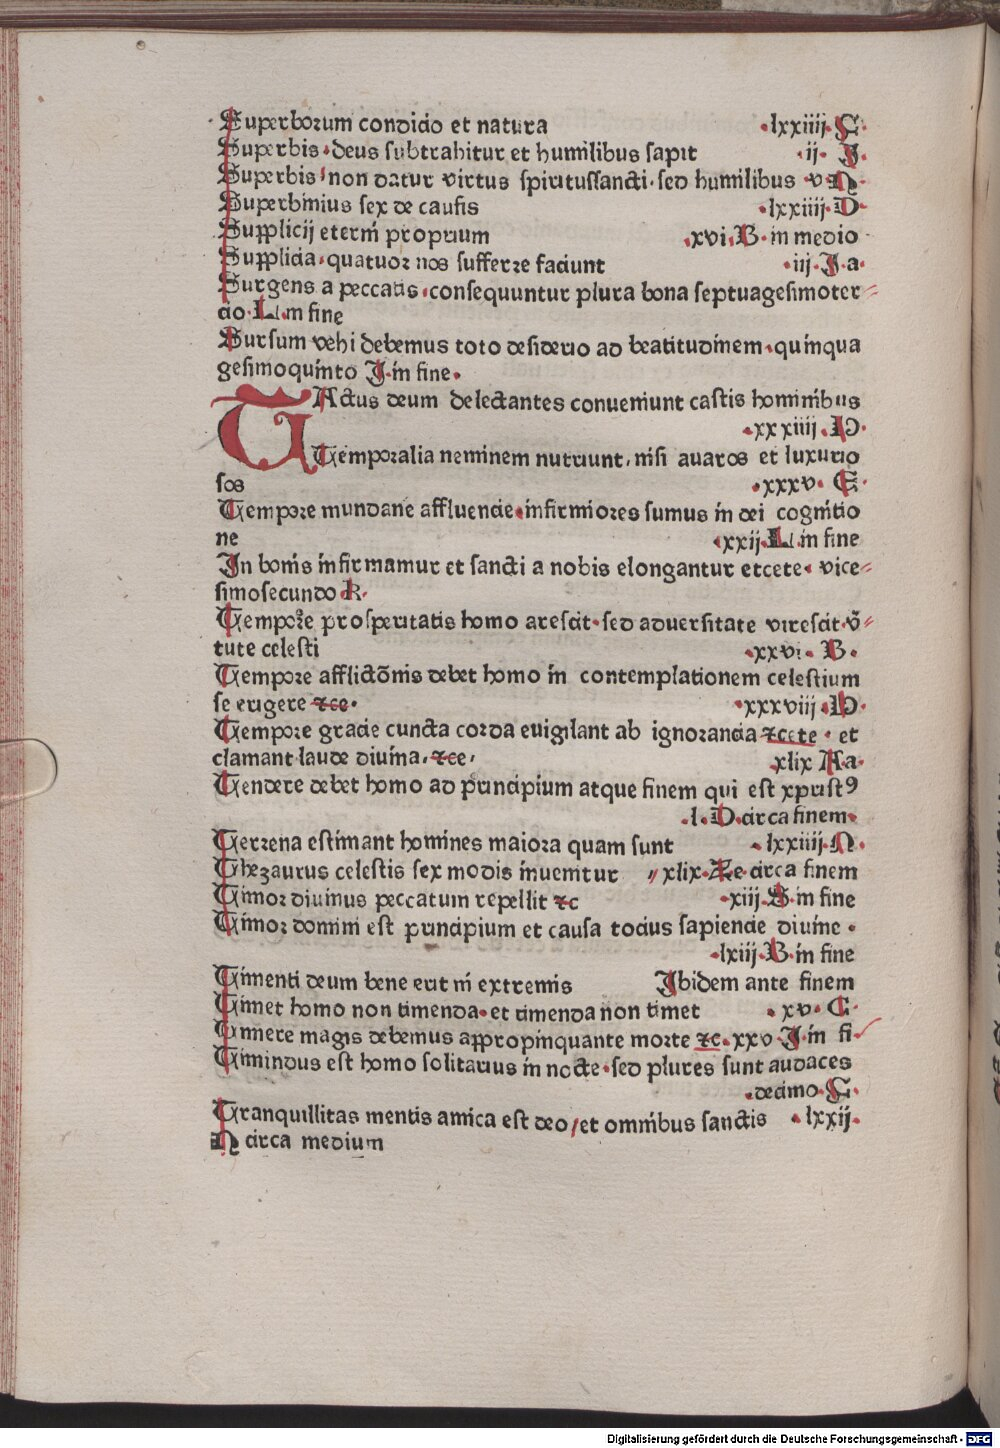 Superborum condicio et natura .lxxiiij.C.
Superbis.deus subtrahitur et humilibus sapit .ij. J.
Superbis/non datur virtus spiritussancti.sed humilibus .v.N.
Superbimus sex de causis .lxxiiij.D.
Supplicij eterni proprium .xvi.B.in medio
Supplicia.quatuor nos sufferre faciunt .iij.J.a.
Surgens a peccatis.consequuntur plura bona septuagesimoter⸗
cio.L.in fine
Sursum vehi debemus toto desiderio ad beatitudinem.quinqua
gesimoquinto J.in fine.
TActus deum delectantes conveniunt castis hominibus
.xxxiiij.D.
Temporalia neminem nutriunt.nisi avaros et luxurio
sos .xxxv. E.
Tempore mundane affluencie.infirmiores sumus in dei cognitio
ne .xxij.L.in fine
In bonis infirmamur et sancti a nobis elongantur etcete. vice⸗
simosecundo R.
Tempore prosperitatis homo arescit.sed adversitate virescit.v̄⸗
tute celesti .xxvi. B.
Tempore afflictōnis debet homo in contemplationem celestium
se erigere ⁊ce. .xxxviij.D.
Tempore gracie cuncta corda evigilant ab ignorancia ⁊cete . et
clamant laude divina.⁊ce. xlix A a.
Tendere debet homo ad principium atque finem qui est xpristꝰ
.l.D.circa finem.
Terrena estimant homines maiora quam sunt .lxxiiij.N.
Thezaurus celestis sex modis invenitur ⸗ xlix.Ze circa finem
Timor divinus peccatum repellit ⁊c .xiij.S.in fine
Timor domini est principium et causa tocius sapiencie divine .
.lxiij.B.in fine
Timenti deum bene erit in extremis Jbidem ante finem
Timet homo non timenda.et timenda non timet .xv. C.
Timere magis debemus appropinquante morte ⁊c.xxv.J.in fi⸗
Timindus est homo solitarius in nocte.sed plures sunt audaces
.decimo.C.
Tranquillitas mentis amica est deo/et omnibus sanctis .lxxij.
N circa medium
Digitalisierung gefördert durch die Deutsche Forschungsgemeinschaft - DFG